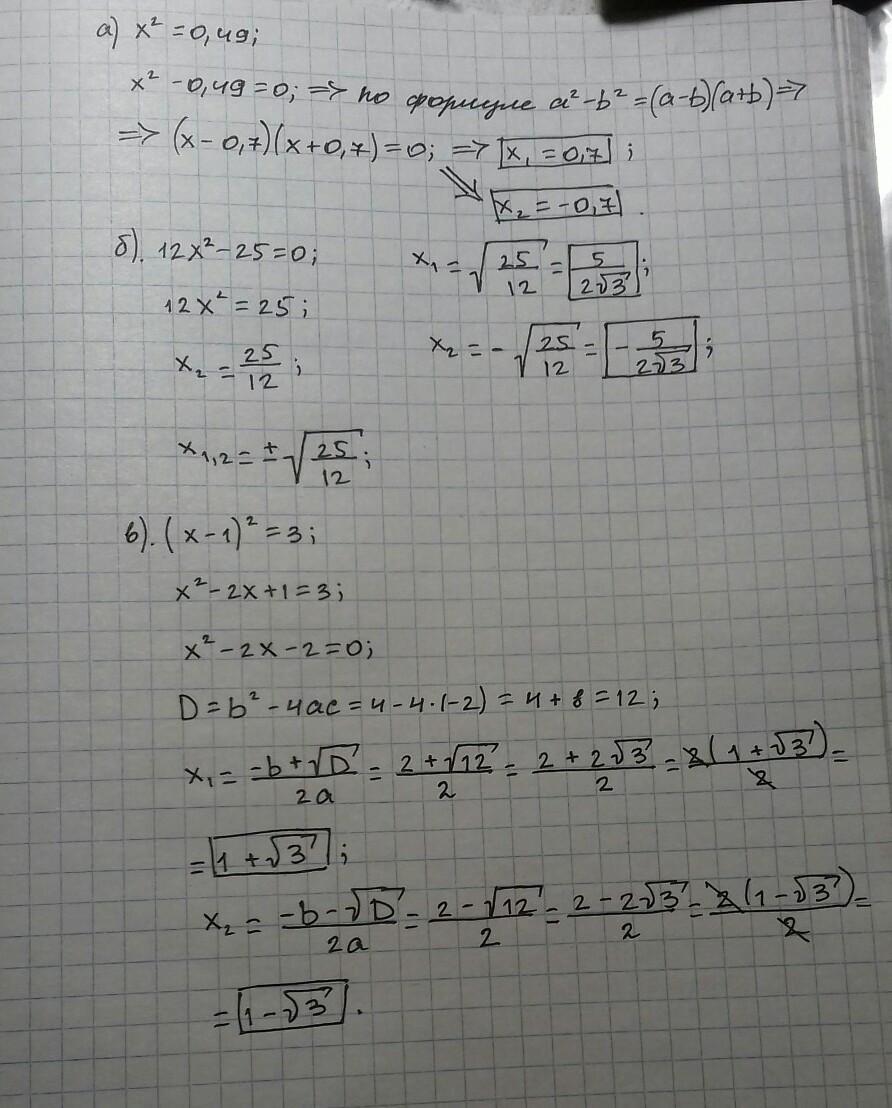 а) x² = 0,49;
x² - 0,49 = 0; => по формуле a² - b² = (a-b)(a+b) =>
=> (x - 0,7)(x + 0,7) = 0; => x₁ = 0,7;
x₂ = -0,7.
б). 12x² - 25 = 0;
12x² = 25;
x₂ = 25/12;
x₁,₂ = ±√(25/12);
x₁ = √(25/12) = 5/(2√3);
x₂ = -√(25/12) = -5/(2√3);
в). (x - 1)² = 3;
x² - 2x + 1 = 3;
x² - 2x - 2 = 0;
D = b² - 4ac = 4 - 4·(-2) = 4 + 8 = 12;
x₁ = (-b + √D)/(2a) = (2 + √12)/2 = (2 + 2√3)/2 = 2(1 + √3)/2 =
= 1 + √3;
x₂ = (-b - √D)/(2a) = (2 - √12)/2 = (2 - 2√3)/2 = 2(1 - √3)/2 =
= 1 - √3.